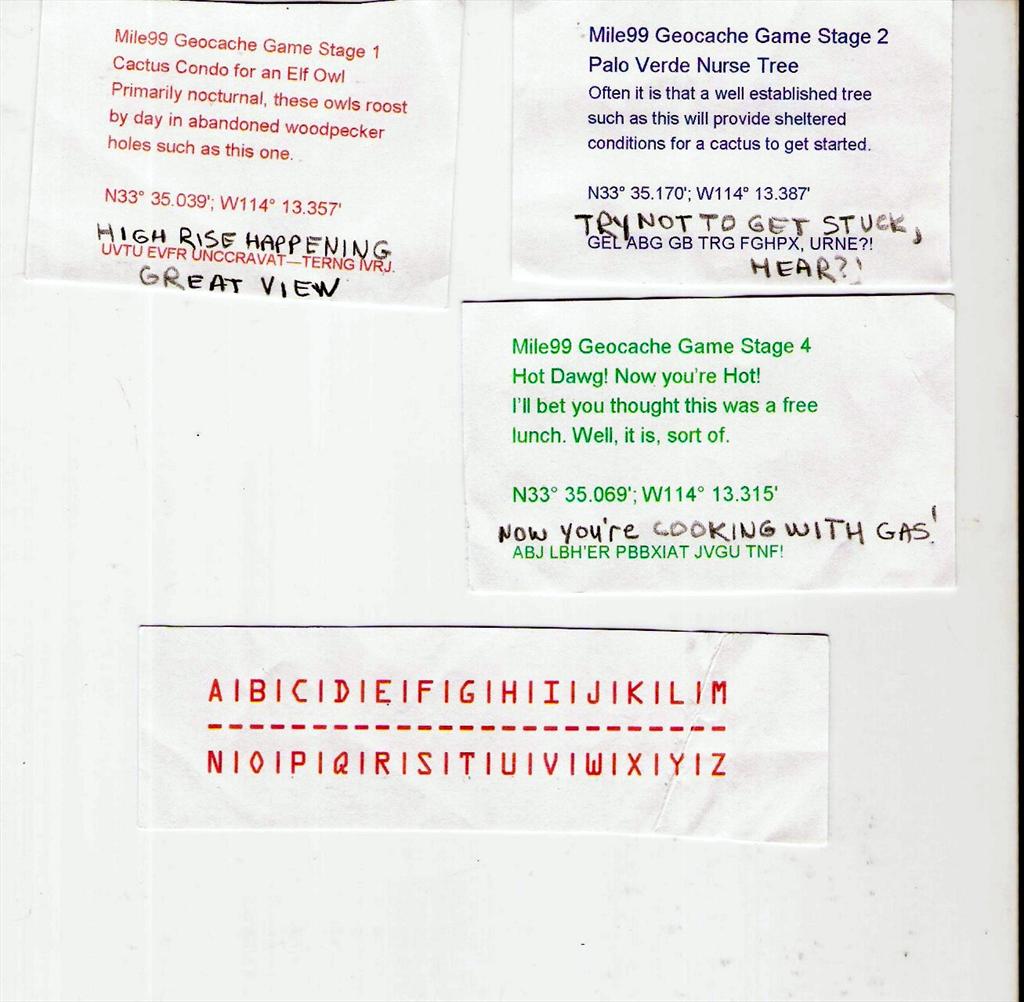 Mile99 Geocache Game Stage 1
Cactus Condo for an Elf Owl
Primarily nocturnal, these owls roost
by day in abandoned woodpecker
holes such as this one.
N33° 35.039'; W114° 13.357'
HIGH RISE HAPPENING
UVTU EVFR UNCCRAVAT—TERNG IVRJ.
GREAT VIEW
Mile99 Geocache Game Stage 2
Palo Verde Nurse Tree
Often it is that a well established tree
such as this will provide sheltered
conditions for a cactus to get started.
N33° 35.170'; W114° 13.387'
TRY NOT TO GET STUCK,
GEL ABG GB TRG FGHPX, URNE?!
HEAR?!
Mile99 Geocache Game Stage 4
Hot Dawg! Now you're Hot!
I'll bet you thought this was a free
lunch. Well, it is, sort of.
N33° 35.069'; W114° 13.315'
NOW YOU'RE COOKING WITH GAS!
ABJ LBH'ER PBBXIAT JVGU TNF!
A|B|C|D|E|F|G|H|I|J|K|L|M
-------------------------
N|O|P|Q|R|S|T|U|V|W|X|Y|Z